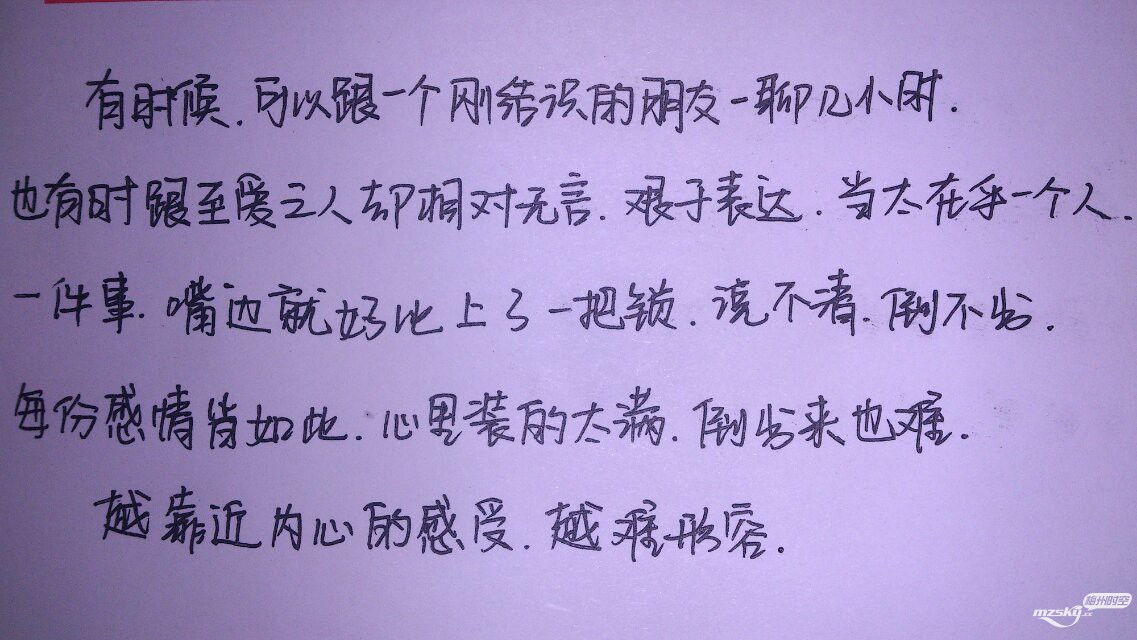 有时候.可以跟一个刚结识的朋友一聊几小时.
也有时跟至爱之人却相对无言.艰于表达.当太在乎一个人.
一件事.嘴边就好比上了一把锁.说不清.倒不出.
每份感情皆如此.心里装的太满.倒出来也难.
越靠近内心的感受.越难形容.
梅州时空
mzsky.cc